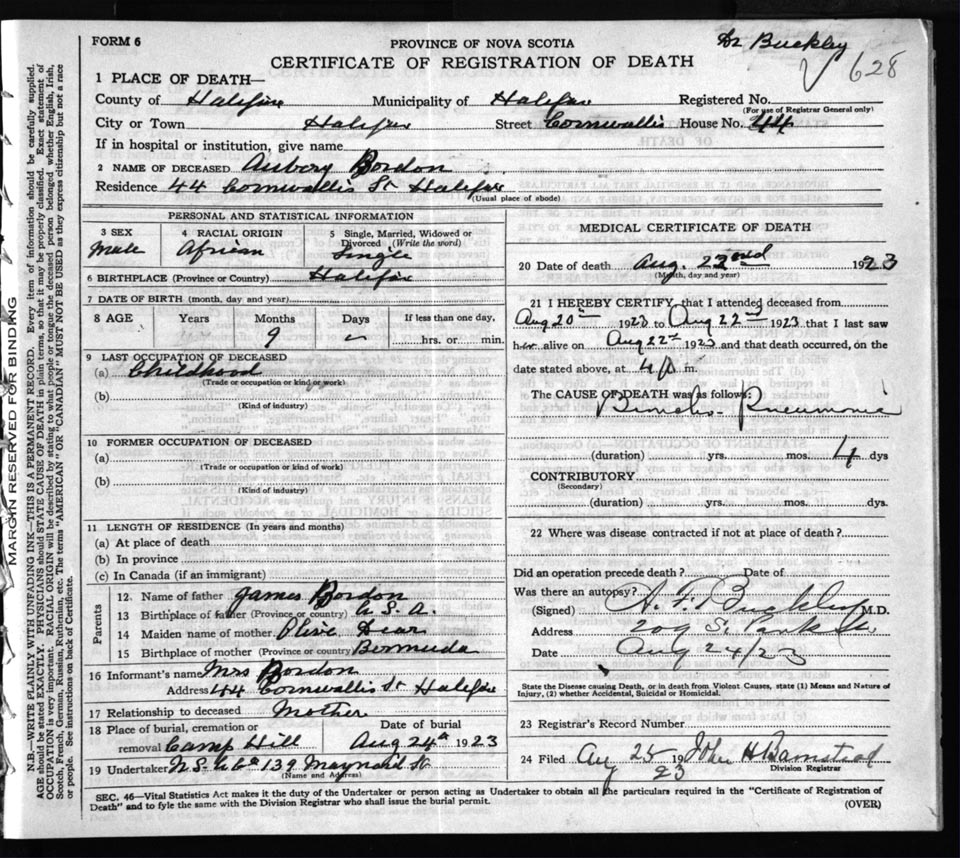 FORM 6
PROVINCE OF NOVA SCOTIA
Dr Buckley
CERTIFICATE OF REGISTRATION OF DEATH
628
1 PLACE OF DEATH—
County of Halifax Municipality of Halifax Registered No.
(For use of Registrar General only)
City or Town Halifax Street Cornwallis House No. 44
If in hospital or institution, give name
2 NAME OF DECEASED Bordon
Residence 44 Cornwallis St Halifax
(Usual place of abode)
PERSONAL AND STATISTICAL INFORMATION
3 SEX 4 RACIAL ORIGIN 5 Single, Married, Widowed or Divorced (Write the word)
Male African Single
6 BIRTHPLACE (Province or Country) Halifax
7 DATE OF BIRTH (month, day and year)
8 AGE Years Months Days If less than one day,
9 hrs. or min.
9 LAST OCCUPATION OF DECEASED
(a) Childhood
(Trade or occupation or kind or work)
(b)
(Kind of industry)
10 FORMER OCCUPATION OF DECEASED
(a)
(Trade or occupation or kind of work)
(b)
(Kind of industry)
11 LENGTH OF RESIDENCE (In years and months)
(a) At place of death
(b) In province
(c) In Canada (if an immigrant)
Parents
12 Name of father James Bordon
13 Birthplace of father (Province or country) U.S.A.
14 Maiden name of mother Olive Dear
15 Birthplace of mother (Province or country) Bermuda
16 Informant's name Mrs Bordon
Address 44 Cornwallis St Halifax
17 Relationship to deceased Mother
18 Place of burial, cremation or Date of burial
removal Camp Hill Aug 24th 1923
19 Undertaker N.S. U Co 139 Maynard St
(Name and Address)
MEDICAL CERTIFICATE OF DEATH
20 Date of death Aug. 22nd 1923
(Month, day and year)
21 I HEREBY CERTIFY, that I attended deceased from
Aug 20th 1923 to Aug 22nd 1923 that I last saw
h alive on Aug 22nd 1923 and that death occurred, on the
date stated above, at 4 p m.
The CAUSE OF DEATH was as follows:
Broncho-Pneumonia
(duration) yrs. mos. 4 dys
CONTRIBUTORY
(Secondary)
(duration) yrs. mos. dys.
22 Where was disease contracted if not at place of death?
Did an operation precede death? Date of
Was there an autopsy?
(Signed) A. F. Buckley M.D.
Address 209 S. Park St
Date Aug 24/23
State the Disease causing Death, or in death from Violent Causes, state (1) Means and Nature of
Injury, (2) whether Accidental, Suicidal or Homicidal.
23 Registrar's Record Number
24 Filed Aug 25 19 23 John H Barnstead
Division Registrar
SEC. 46—Vital Statistics Act makes it the duty of the Undertaker or person acting as Undertaker to obtain all the particulars required in the "Certificate of Registration of
Death" and to fyle the same with the Division Registrar who shall issue the burial permit.
(OVER)
MARGIN RESERVED FOR BINDING
N.B.—WRITE PLAINLY WITH UNFADING INK—THIS IS A PERMANENT RECORD. Every item of information should be carefully supplied.
AGE should be stated EXACTLY. PHYSICIANS should STATE CAUSE OF DEATH in plain terms, so that it may be properly classified. Exact statement of
OCCUPATION is very important. RACIAL ORIGIN will be described by stating to what people or tongue the deceased person belonged whether English, Irish,
Scotch, French, German, Russian, Ruthenian, etc. The terms "AMERICAN" or "CANADIAN" MUST NOT BE USED as they express citizenship but not a race
or people. See instructions on back of Certificate.